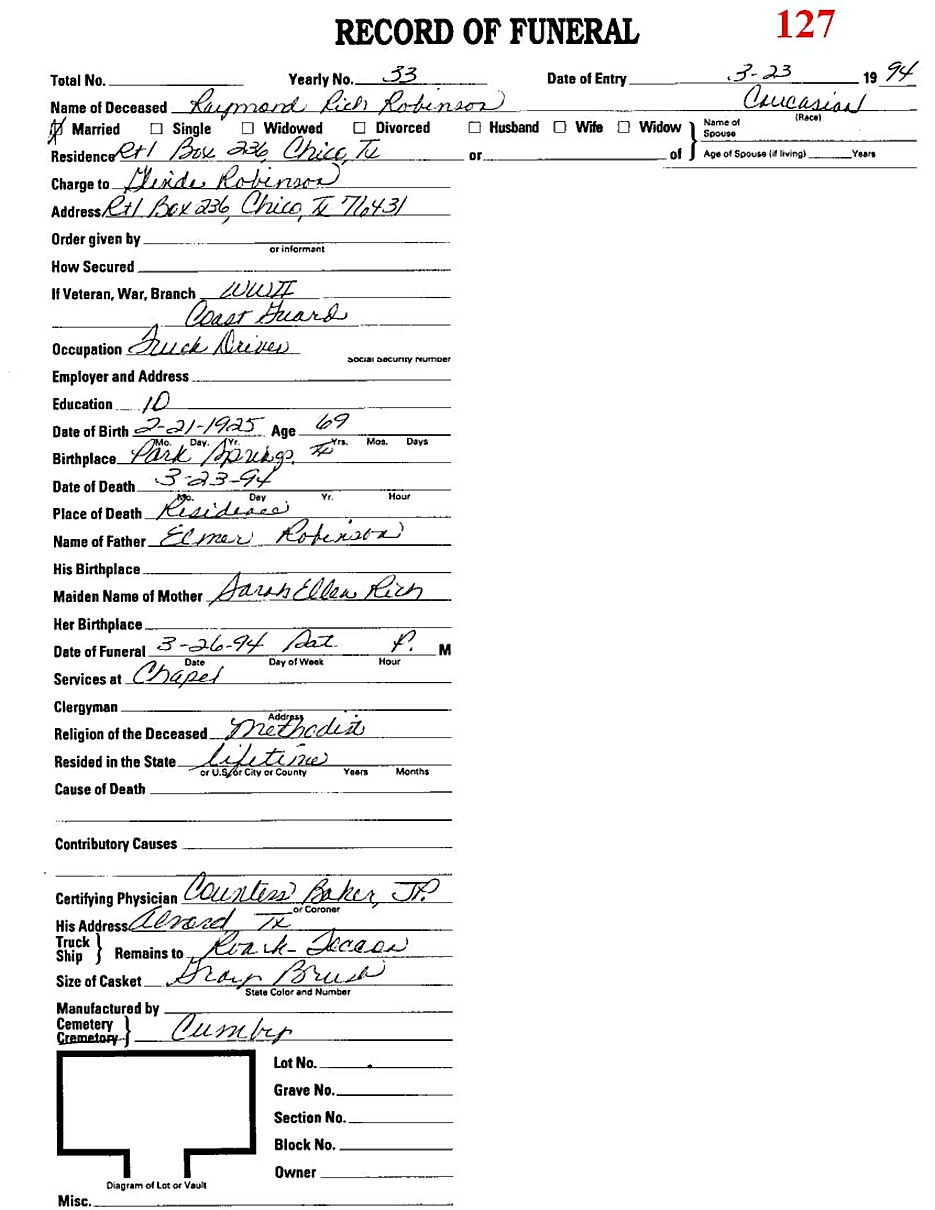 RECORD OF FUNERAL
127
Total No. Yearly No. 33 Date of Entry 3-23 1994
Name of Deceased Raymond Rich Robinson Caucasion
(Race)
Married Single Widowed Divorced Husband Wife Widow } Name of Spouse
Residence Rt 1 Box 236 Chico, Tx or of Age of Spouse (if living) Years
Charge to Robinson
Address Rt 1 Box 236, Chico, Tx 76431
Order given by
or informant
How Secured
If Veteran, War, Branch WWII
Coast Guard
Occupation Truck Driver
Social Security Number
Employer and Address
Education 10
Date of Birth 2-21-1925 Age 69
Mo. Day. Yr. Yrs. Mos. Days
Birthplace Park Springs, Tx
Date of Death 3-23-94
Mo. Day Yr. Hour
Place of Death Residence
Name of Father Elmer Robinson
His Birthplace
Maiden Name of Mother Sarah Ellen Rich
Her Birthplace
Date of Funeral 3-26-94 Sat. P. M
Date Day of Week Hour
Services at Chapel
Clergyman
Address
Religion of the Deceased Methodist
Resided in the State lifetime
or U.S. or City or County Years Months
Cause of Death
Contributory Causes
Certifying Physician Countess Baker, JP.
or Coroner
His Address Alvord Tx
Truck
Ship } Remains to
Size of Casket Brush
State Color and Number
Manufactured by
Cemetery
Crematory } Cumby
Lot No.
Grave No.
Section No.
Block No.
Owner
Diagram of Lot or Vault
Misc.